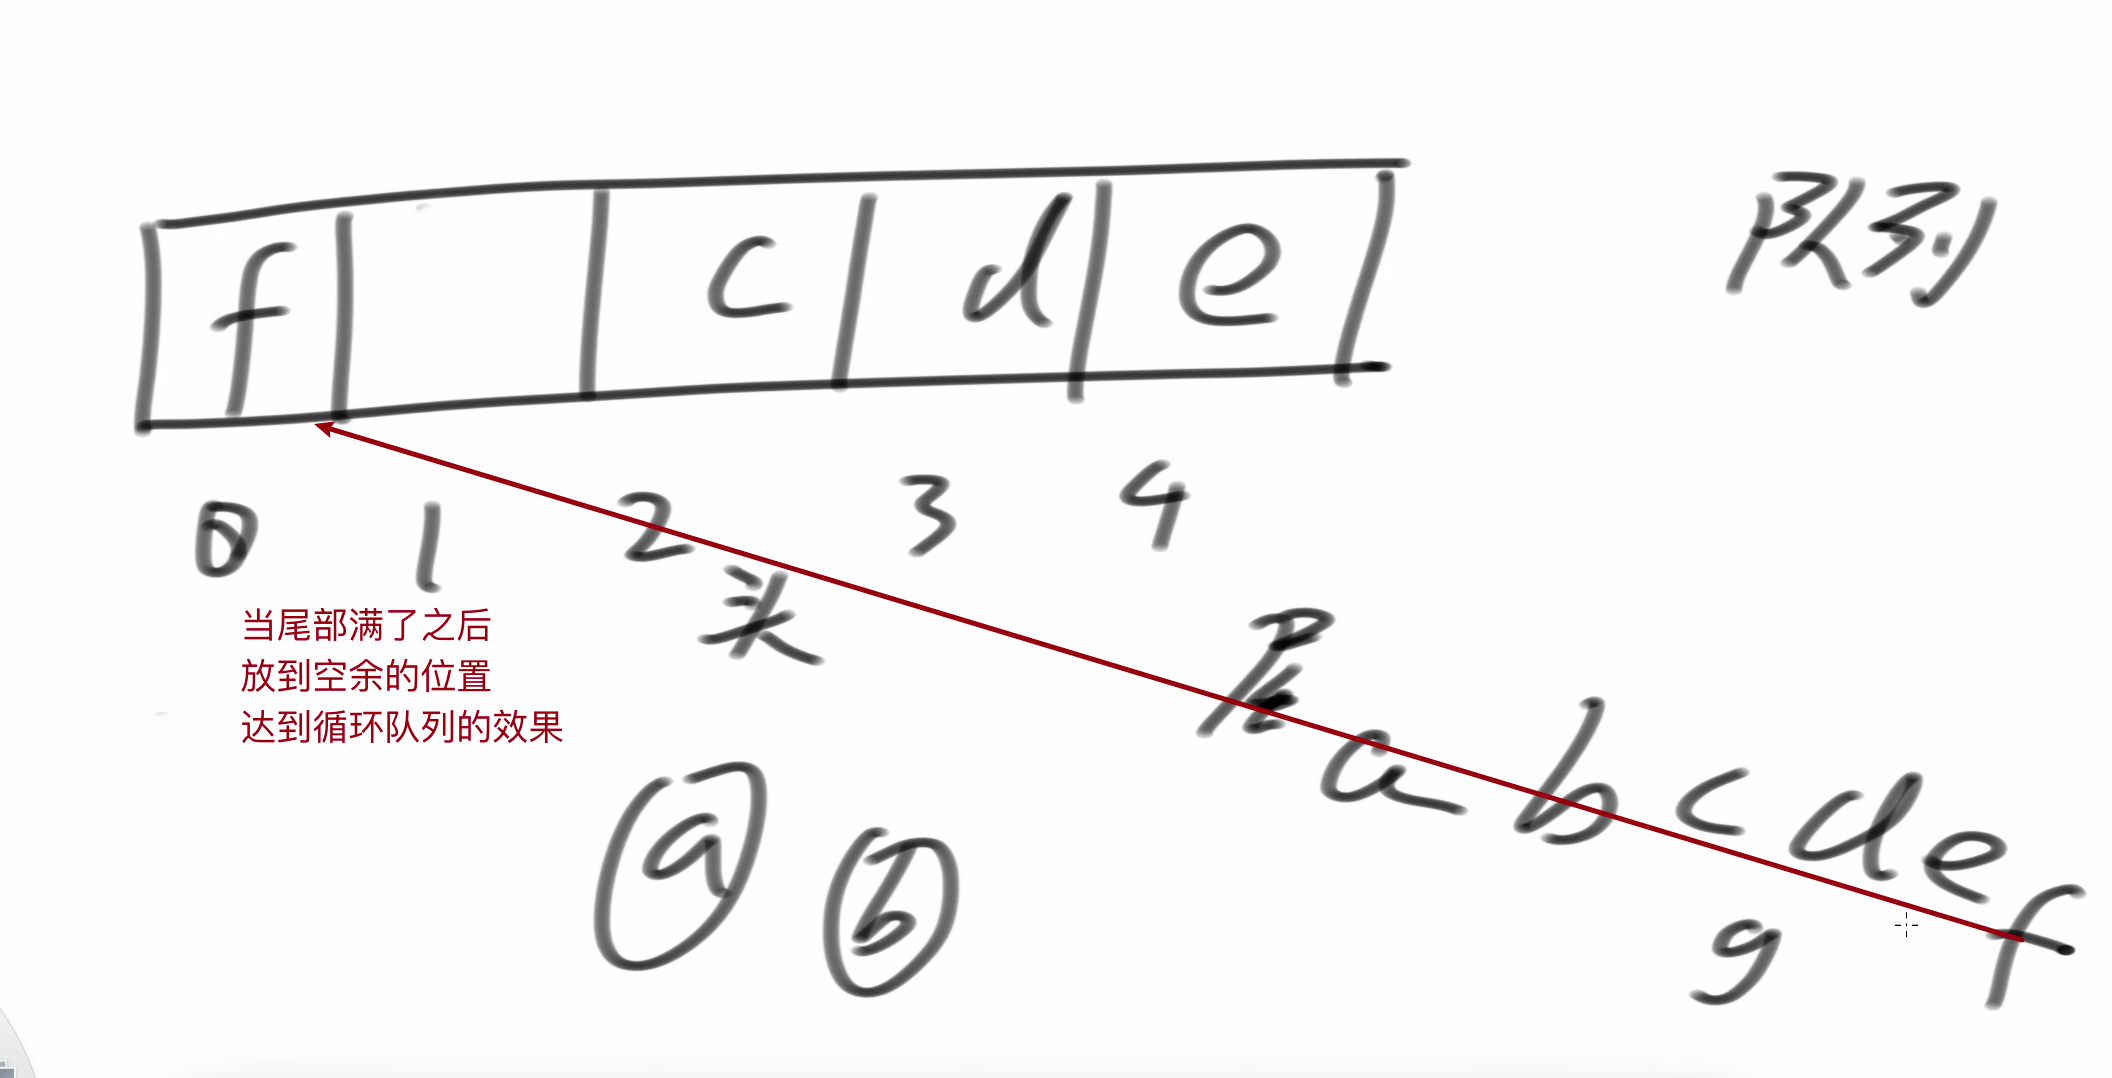 队列
f c d e
0 1 2 3 4
头
尾
当尾部满了之后
放到空余的位置
达到循环队列的效果
a b c d e f
g
a b